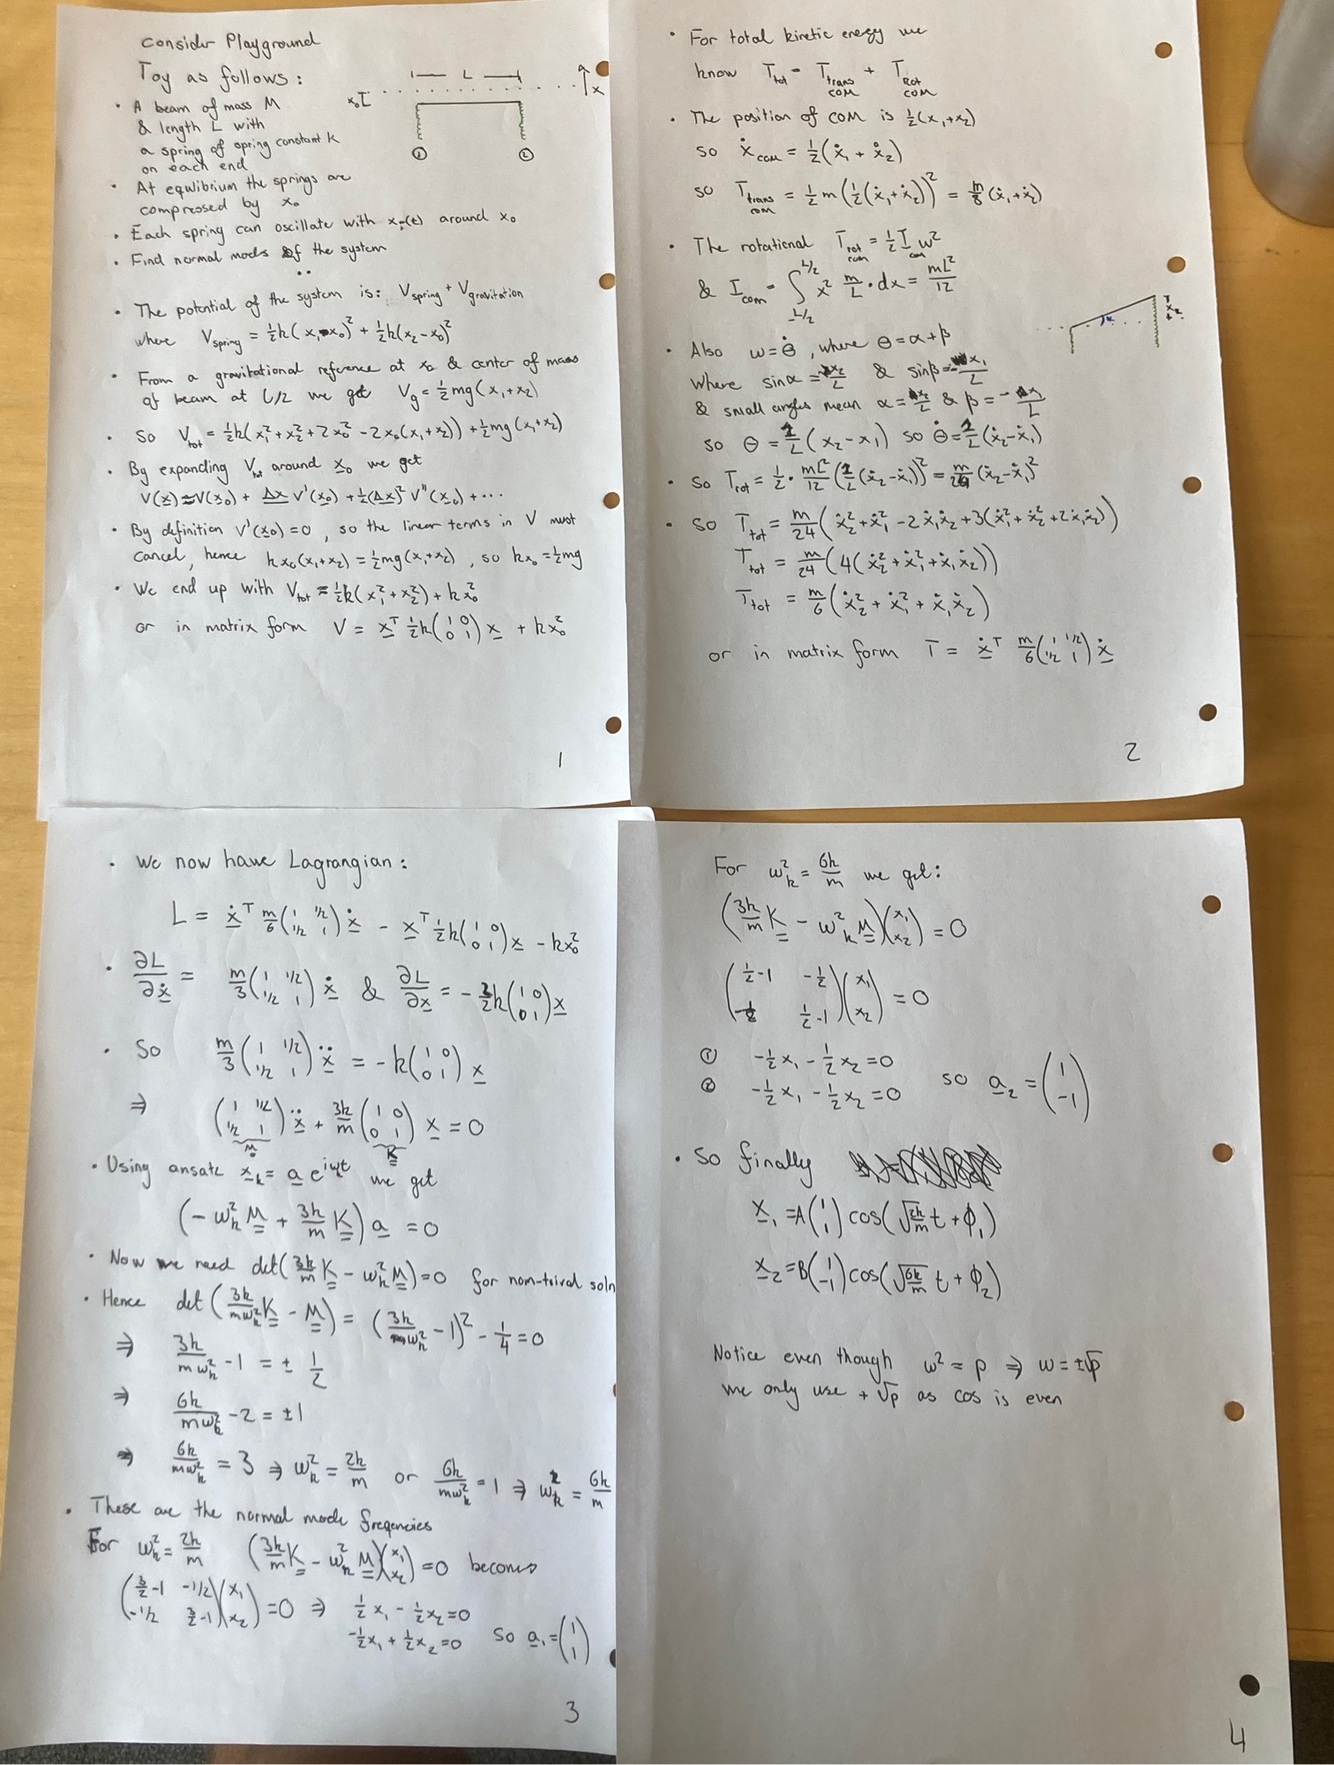 Consider Playground
Toy as follows:
• A beam of mass M
& length L with
a spring of spring constant k
on each end
• At equilibrium the springs are
compressed by x₀
• Each spring can oscillate with xᵢ(t) around x₀
• Find normal modes of the system
x₀ L x
① ②
• The potential of the system is: V_spring + V_gravitation
where V_spring = ½k(x₁-x₀)² + ½k(x₂-x₀)²
• From a gravitational reference at x₀ & center of mass
of beam at L/2 we get V_g = ½mg(x₁+x₂)
• So V_tot = ½k(x₁²+x₂²+2x₀²-2x₀(x₁+x₂)) + ½mg(x₁+x₂)
• By expanding V_tot around x₀ we get
V(x) ≈ V(x₀) + Δx V'(x₀) + ½(Δx)² V''(x₀) + ...
• By definition V'(x₀)=0, so the linear terms in V must
cancel, hence kx₀(x₁+x₂) = ½mg(x₁+x₂), so kx₀ = ½mg
• We end up with V_tot = ½k(x₁²+x₂²) + kx₀²
or in matrix form V = xᵀ ½k(1 0 0 1) x + kx₀²
1
• For total kinetic energy we
know T_tot = T_trans COM + T_Rot COM
• The position of COM is ½(x₁+x₂)
so ẋ_com = ½(ẋ₁ + ẋ₂)
so T_trans com = ½m(½(ẋ₁+ẋ₂))² = m/8 (ẋ₁+ẋ₂)
• The rotational T_rot com = ½I_com ω²
& I_com = ∫_{-L/2}^{L/2} x² m/L · dx = mL²/12
• Also ω = θ̇, where θ = α+β
where sinα = x₂/L & sinβ = -x₁/L
& small angles mean α = x₂/L & β = -x₁/L
so θ = 1/L (x₂-x₁) so θ̇ = 1/L (ẋ₂-ẋ₁)
• so T_rot = ½ · mL²/12 (1/L (ẋ₂-ẋ₁))² = m/24 (ẋ₂-ẋ₁)²
• so T_tot = m/24 (ẋ₂²+ẋ₁²-2ẋ₁ẋ₂+3(ẋ₁²+ẋ₂²+2ẋ₁ẋ₂))
T_tot = m/24 (4(ẋ₂²+ẋ₁²+ẋ₁ẋ₂))
T_tot = m/6 (ẋ₂²+ẋ₁²+ẋ₁ẋ₂)
or in matrix form T = ẋᵀ m/6 (1 1/2 1/2 1) ẋ
2
• We now have Lagrangian:
L = ẋᵀ m/6 (1 1/2 1/2 1) ẋ - xᵀ ½k(1 0 0 1) x - kx₀²
• ∂L/∂ẋ = m/3 (1 1/2 1/2 1) ẋ & ∂L/∂x = -2/2 k(1 0 0 1) x
• So m/3 (1 1/2 1/2 1) ẍ = -k(1 0 0 1) x
⇒ (1 1/2 1/2 1) ẍ + 3k/m (1 0 0 1) x = 0
M K
• Using ansatz x_k = a e^{iω_k t} we get
(-ω_k² M + 3k/m K) a = 0
• Now we need det(3k/m K - ω_k² M) = 0 for non-trival soln
• Hence det(3k/mω_k² K - M) = (3k/mω_k² - 1)² - 1/4 = 0
⇒ 3k/mω_k² - 1 = ± 1/2
⇒ 6k/mω_k² - 2 = ±1
⇒ 6k/mω_k² = 3 ⇒ ω_k² = 2k/m or 6k/mω_k² = 1 ⇒ ω_k² = 6k/m
• These are the normal mode freqencies
For ω_k² = 2k/m (3k/m K - ω_k² M)(x₁ x₂) = 0 becomes
(3/2-1 -1/2 -1/2 3/2-1)(x₁ x₂) = 0 ⇒ ½x₁ - ½x₂ = 0
-½x₁ + ½x₂ = 0 so a₁ = (1 1)
3
For ω_k² = 6k/m we get:
(3k/m K - ω_k² M)(x₁ x₂) = 0
(½-1 -½ -½ ½-1)(x₁ x₂) = 0
① -½x₁ - ½x₂ = 0
② -½x₁ - ½x₂ = 0 so a₂ = (1 -1)
• So finally
x₁ = A(1 1) cos(√(2k/m) t + ϕ₁)
x₂ = B(1 -1) cos(√(6k/m) t + ϕ₂)
Notice even though ω² = p ⇒ ω = ±√p
we only use +√p as cos is even
4